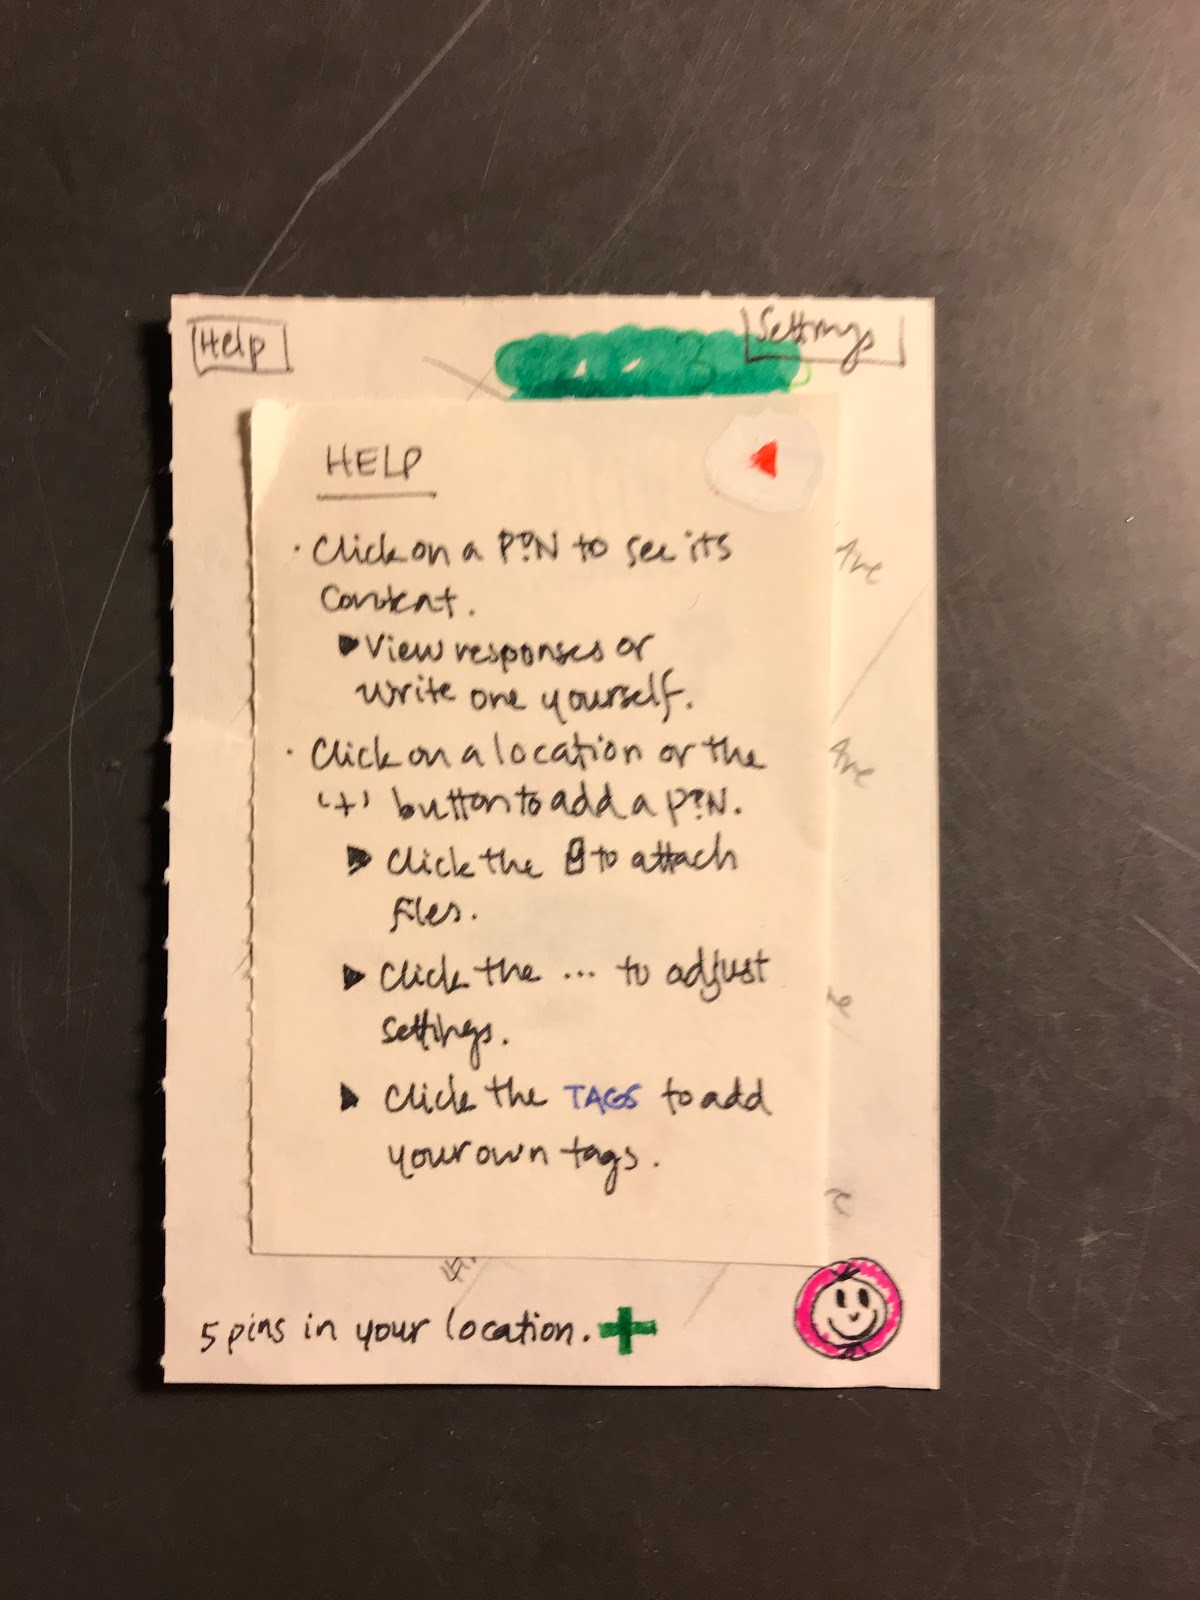 Help
Settings
HELP
· Click on a P?N to see its
content.
▶ View responses or
write one yourself.
· Click on a location or the
'+' button to add a P?N.
▶ Click the to attach
files.
▶ Click the ... to adjust
settings.
▶ Click the TAGS to add
your own tags.
Ave
Ave
5 pins in your location. +